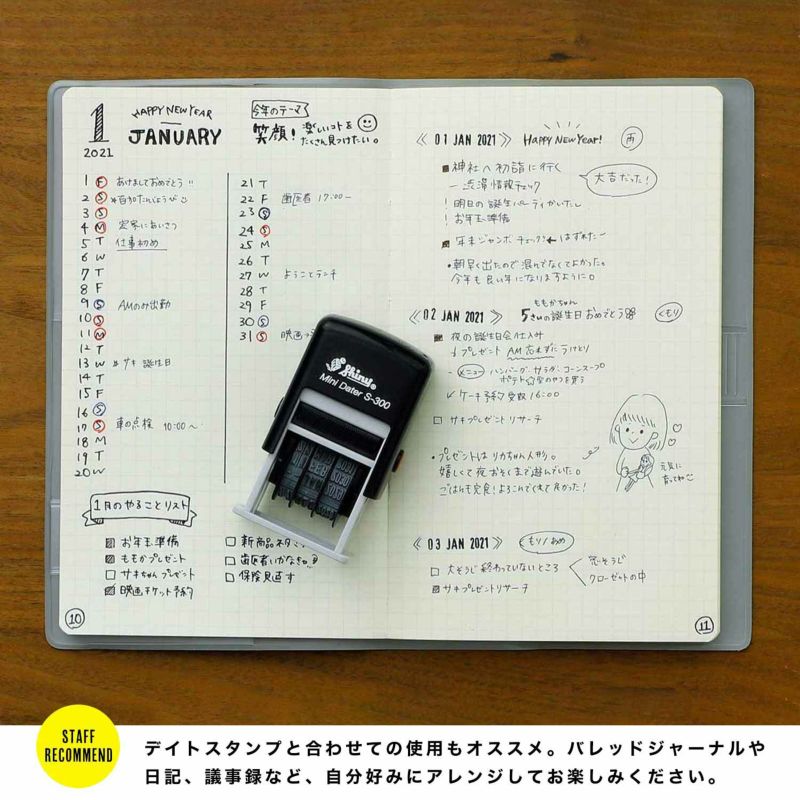 1
HAPPY NEW YEAR
JANUARY
2021
今年のテーマ
笑顔! 楽しいコトを
たくさん見つけたい。
1 F あけましておめでとう!!
2 S
3 S
4 M 定家にあいさつ
5 T 仕事初め
6 W
7 T
8 F
9 S AMのみ出勤
10 S
11 M
12 T
13 W サキ誕生日
14 T
15 F
16 S
17 S 車の点検 10:00〜
18 M
19 T
20 W
21 T
22 F 歯医者 17:00〜
23 S
24 S
25 M
26 T
27 W ようことランチ
28 T
29 F
30 S
31 S 映画
1月のやることリスト
お年玉準備
ももかプレゼント
サキちゃんプレゼント
映画チケット予約
新商品ネタ
歯医者いかなきゃ
保険見直す
10
Shiny
Mini Dater S-300
01 JAN 2021 HAPPY NEW YEAR! 雨
神社へ初詣に行く
渋滞情報チェック
大吉だった!
! 明日の誕生パーティかいだし
! お年玉準備
年末ジャンボチェック! ← はずれたー
・朝早く出たので混んでなくてよかった。
今年も良い年になりますように。
ももかちゃん
02 JAN 2021 5さいの誕生日おめでとう くもり
夜の誕生日会仕込み
プレゼント AM忘れずにうけとり
メニュー ハンバーグ・サラダ・コーンスープ
ポテト☆型のやつを買う
ケーキ予約受取 16:00
サキプレゼントリサーチ
・プレゼントはリカちゃん人形。
嬉しくて夜おそくまで遊んでいた。
ごはんも完食! よろこんでくれて良かった!
元気に
育ってね
03 JAN 2021 くもり/あめ
大そうじ終わっていないところ
窓そうじ
クローゼットの中
サキプレゼントリサーチ
11
STAFF
RECOMMEND
デイトスタンプと合わせての使用もオススメ。バレッドジャーナルや
日記、議事録など、自分好みにアレンジしてお楽しみください。